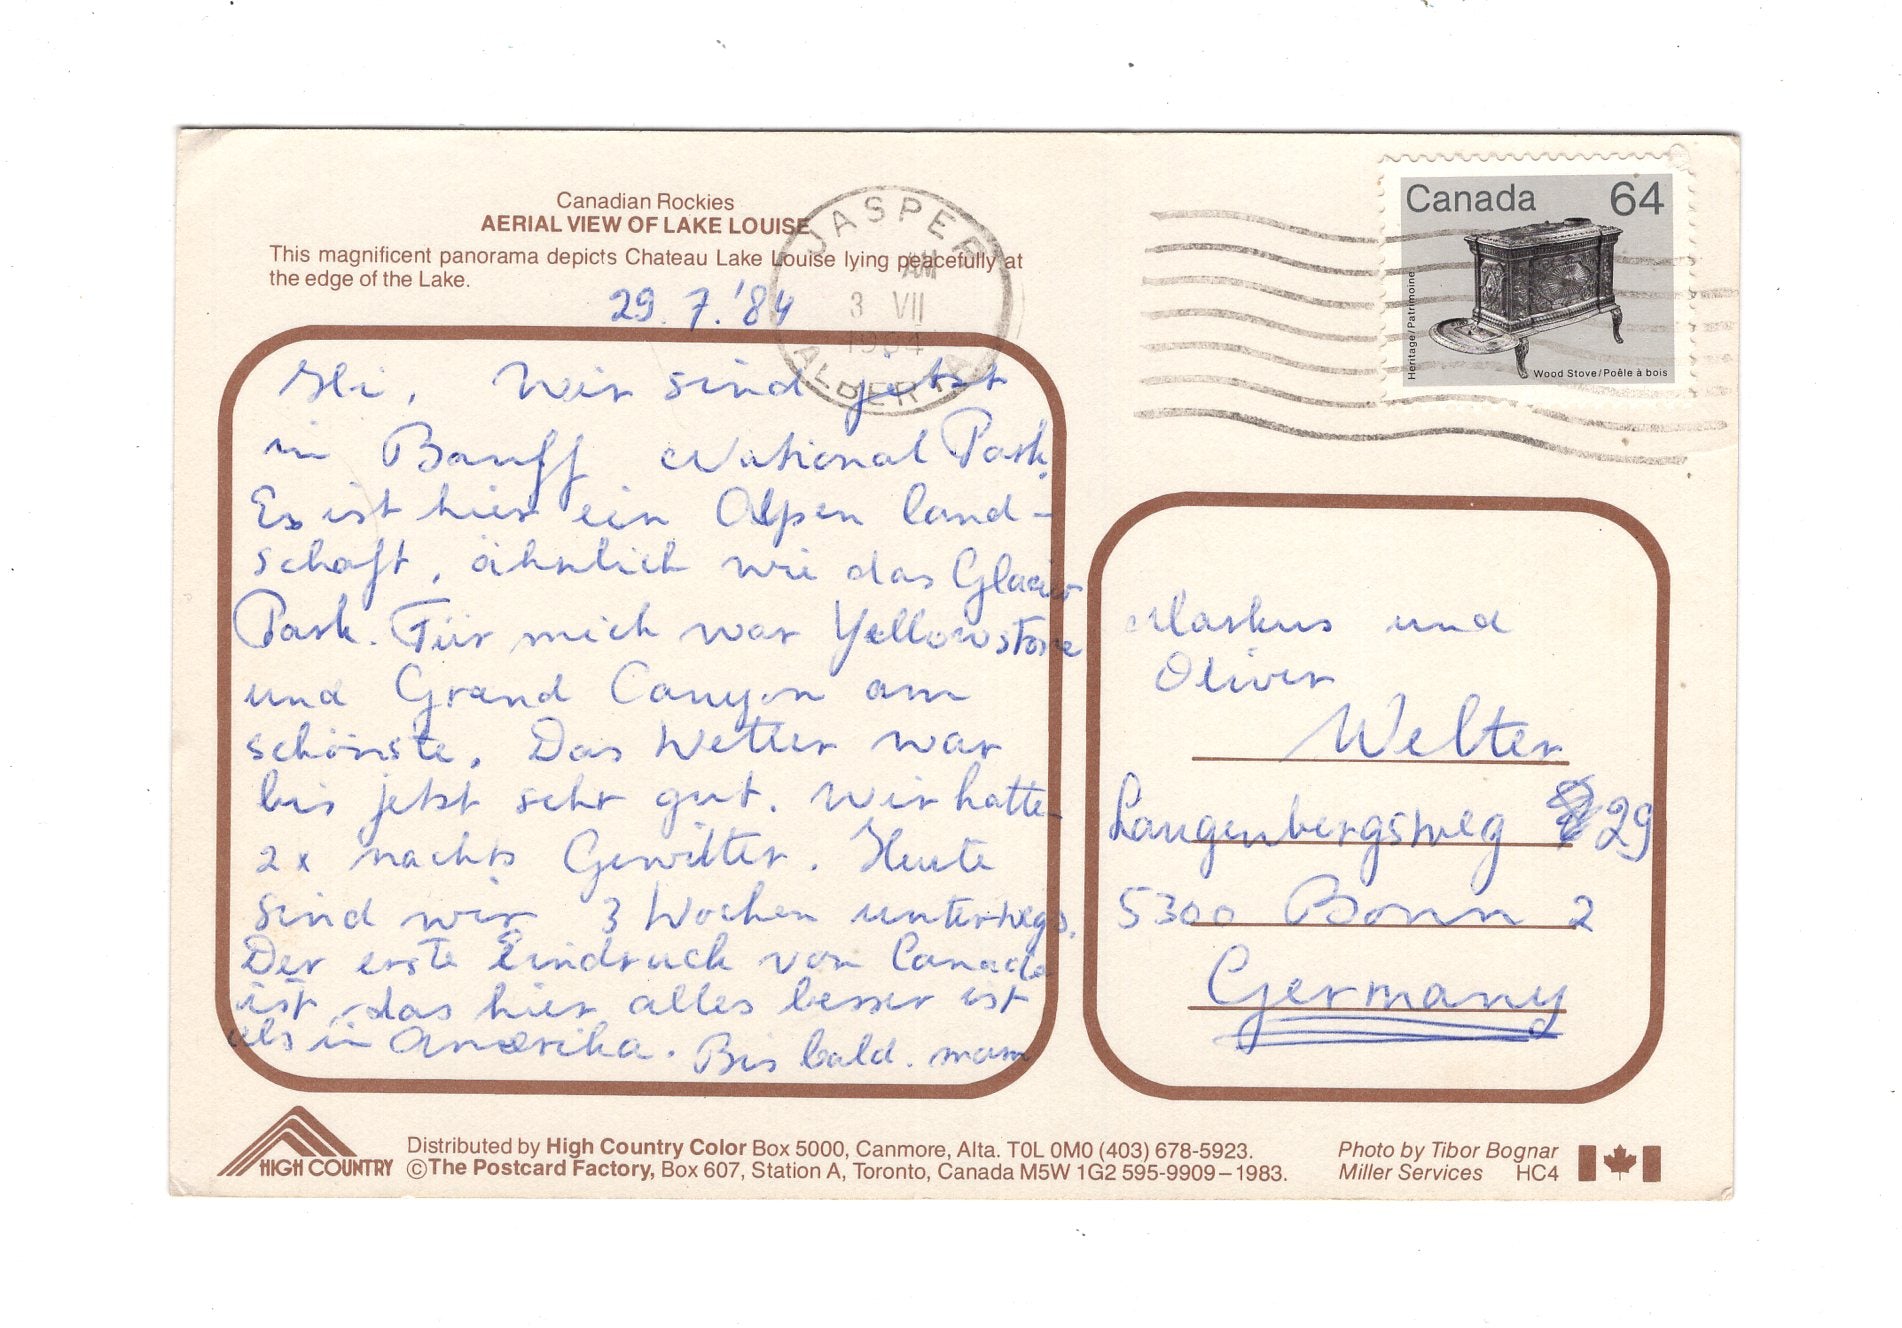 Canadian Rockies
AERIAL VIEW OF LAKE LOUISE
This magnificent panorama depicts Chateau Lake Louise lying peacefully at
the edge of the Lake.
29. 7. '84
JASPER
AM
3 VII
1984
ALBERTA
Canada 64
Heritage/Patrimoine
Wood Stove/Poêle à bois
Hi, Wir sind jetzt
in Banff National Park.
Es ist hier ein Alpen land-
schaft, ähnlich wie das Glacier
Park. Für mich war Yellowstone
und Grand Canyon am
schönste. Das Wetter war
bis jetzt sehr gut. Wir hatte
2x nachts Gewitter. Heute
sind wir 3 Wochen unterwegs.
Der erste Eindruck von Canada
ist, das hier alles besser ist
als in Amerika. Bis bald. mam
Markus und
Oliver
Welter
Langenbergsweg 29
5300 Bonn 2
Germany
HIGH COUNTRY
Distributed by High Country Color Box 5000, Canmore, Alta. T0L 0M0 (403) 678-5923.
©The Postcard Factory, Box 607, Station A, Toronto, Canada M5W 1G2 595-9909–1983.
Photo by Tibor Bognar
Miller Services HC4